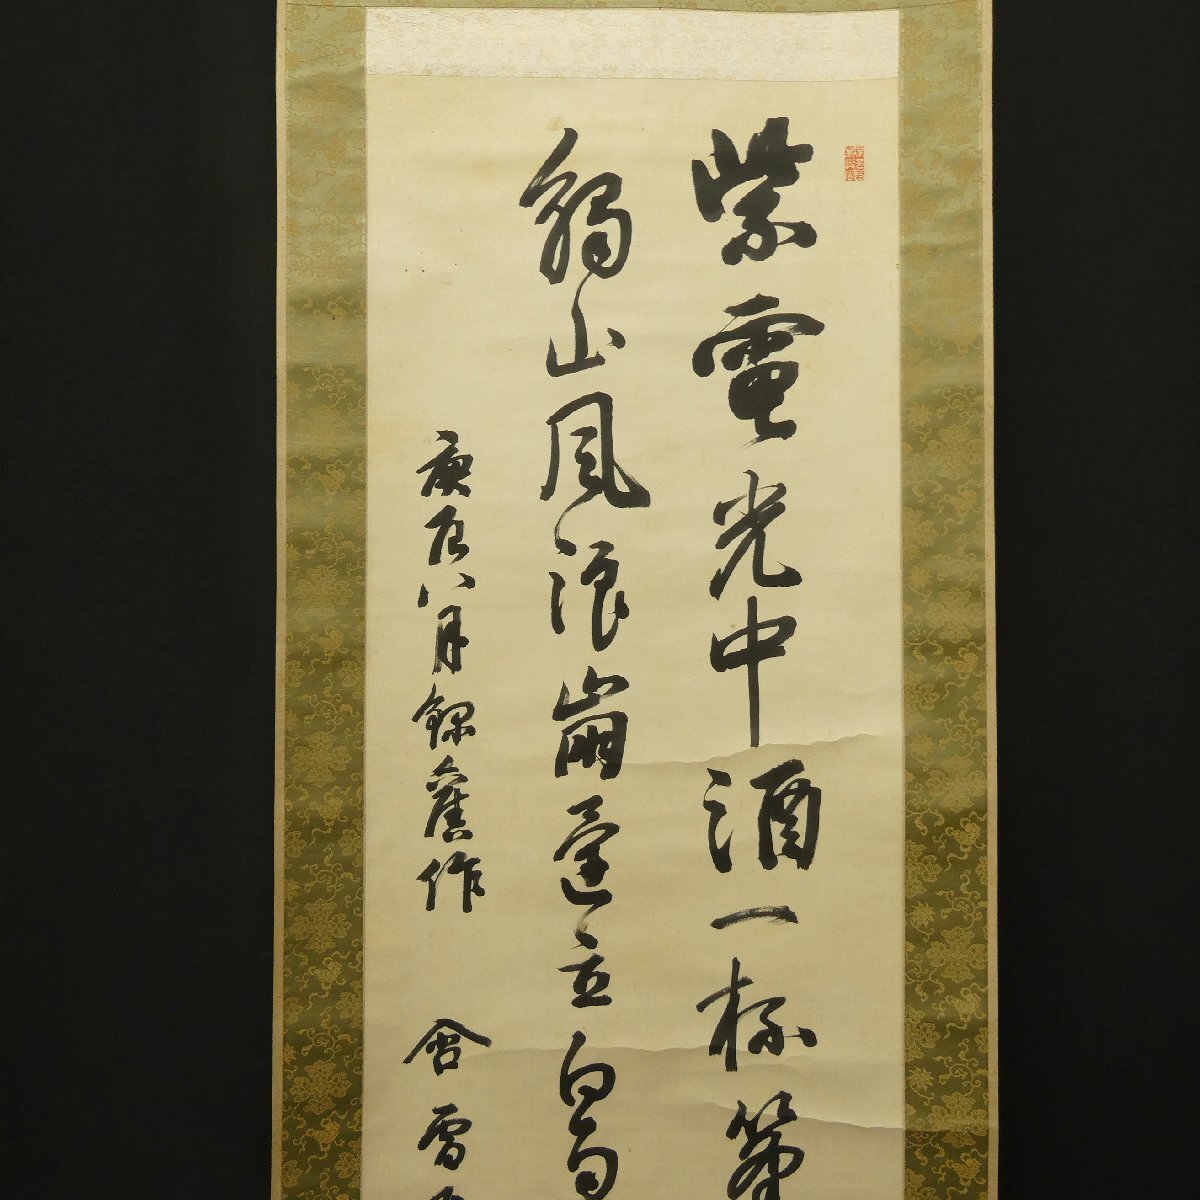 紫電光中酒一杯
觸山風浪崩立白
庚辰八月録舊作 含雪